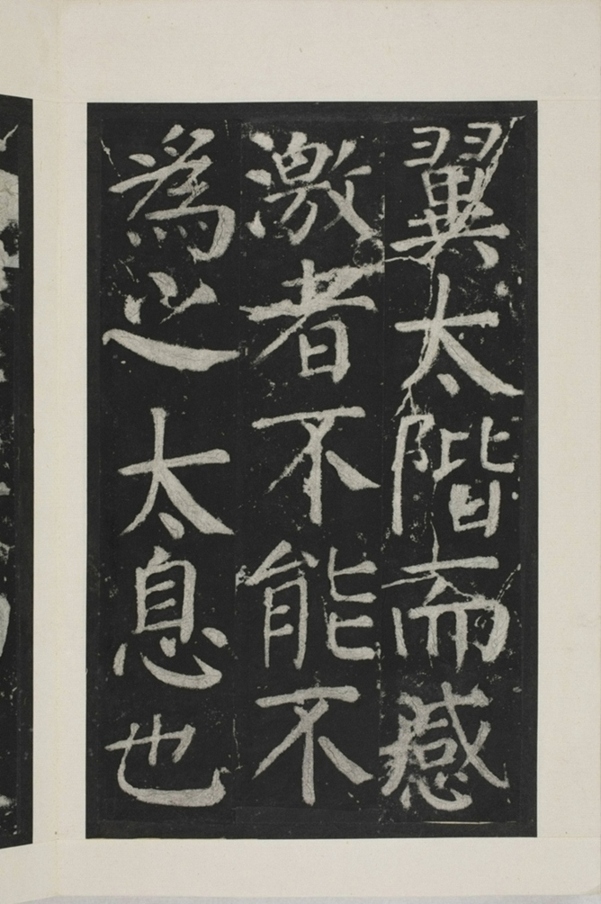 翼太階而感
激者不能不
為之太息也